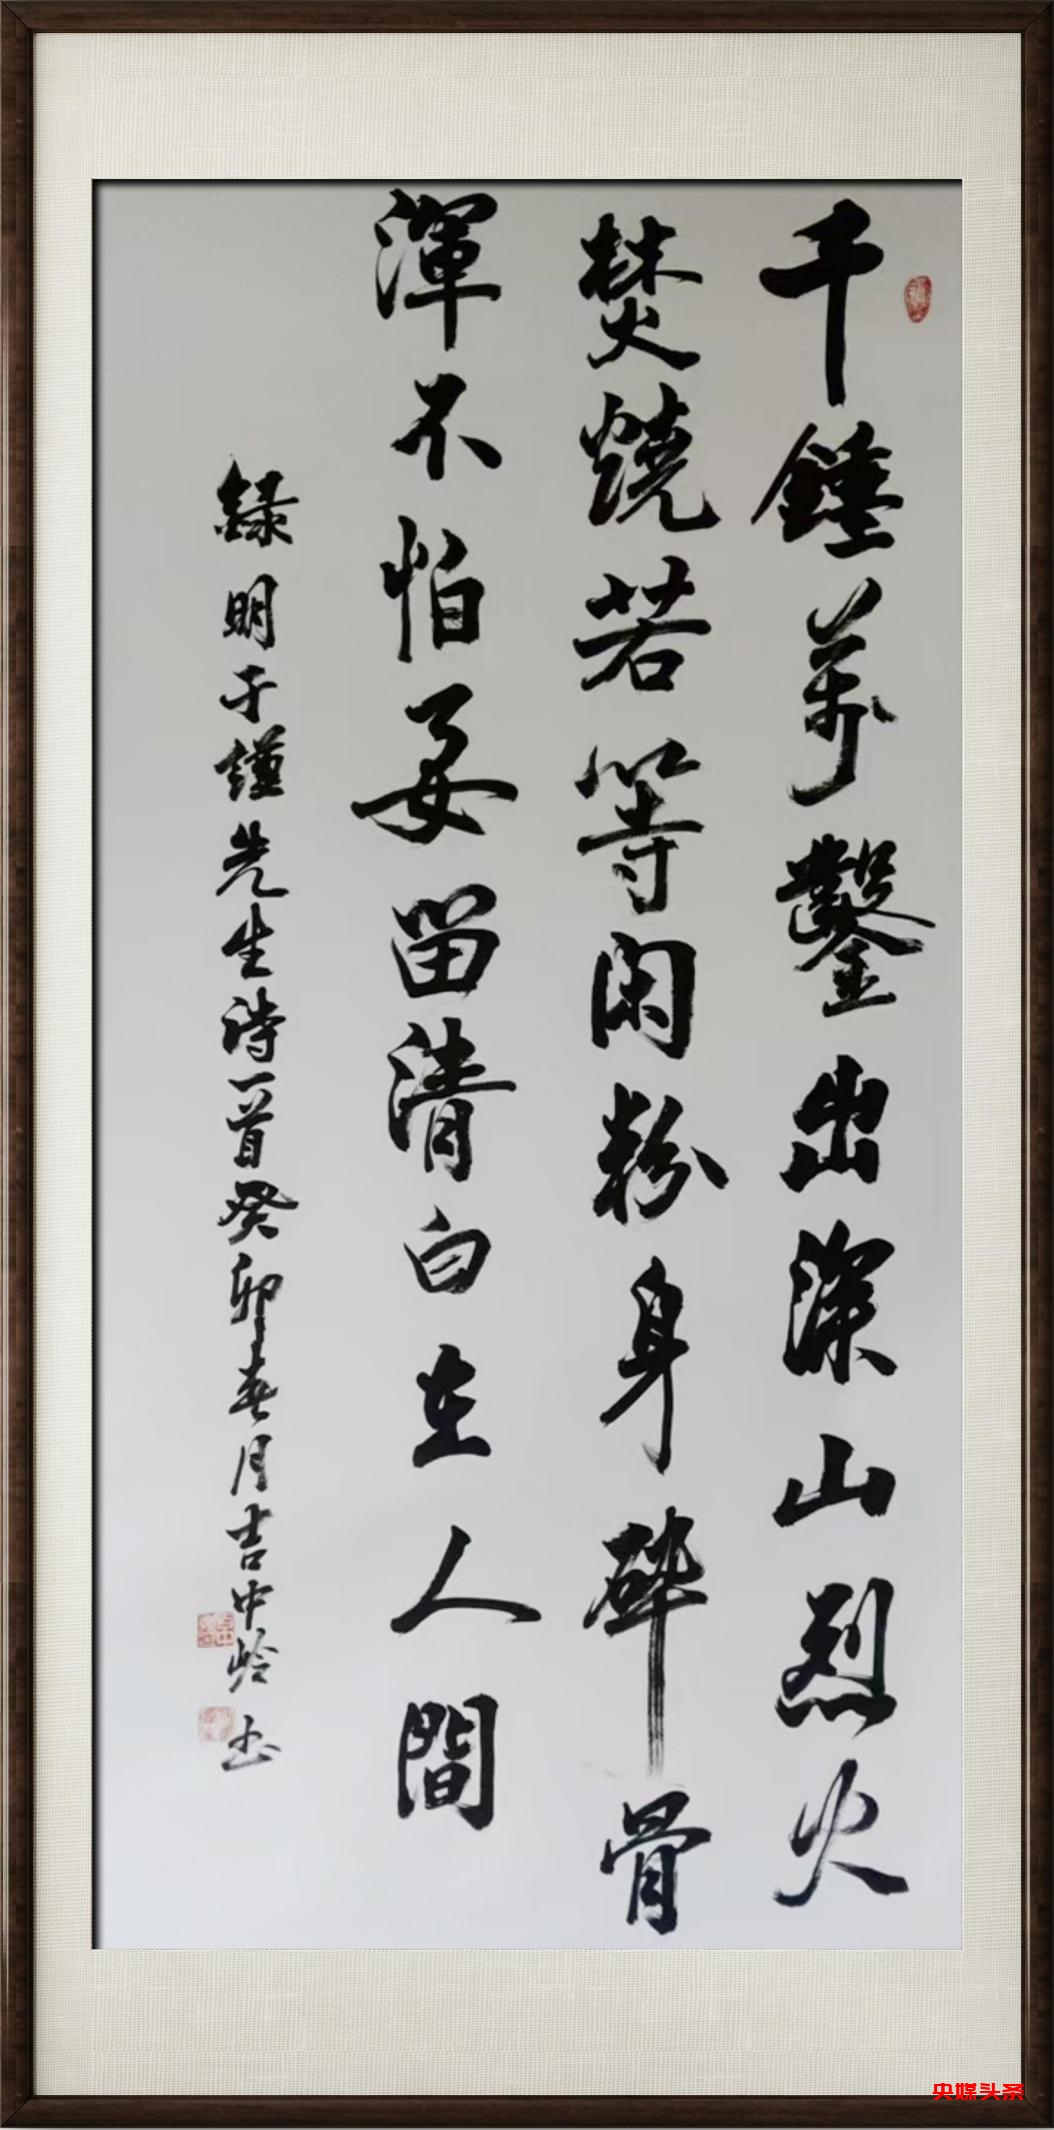 千錘萬鑿出深山烈火
焚燒若等闲粉身碎骨
渾不怕要留清白在人間
録明于謙先生詩一首癸卯春月吉中岭书
央媒头条